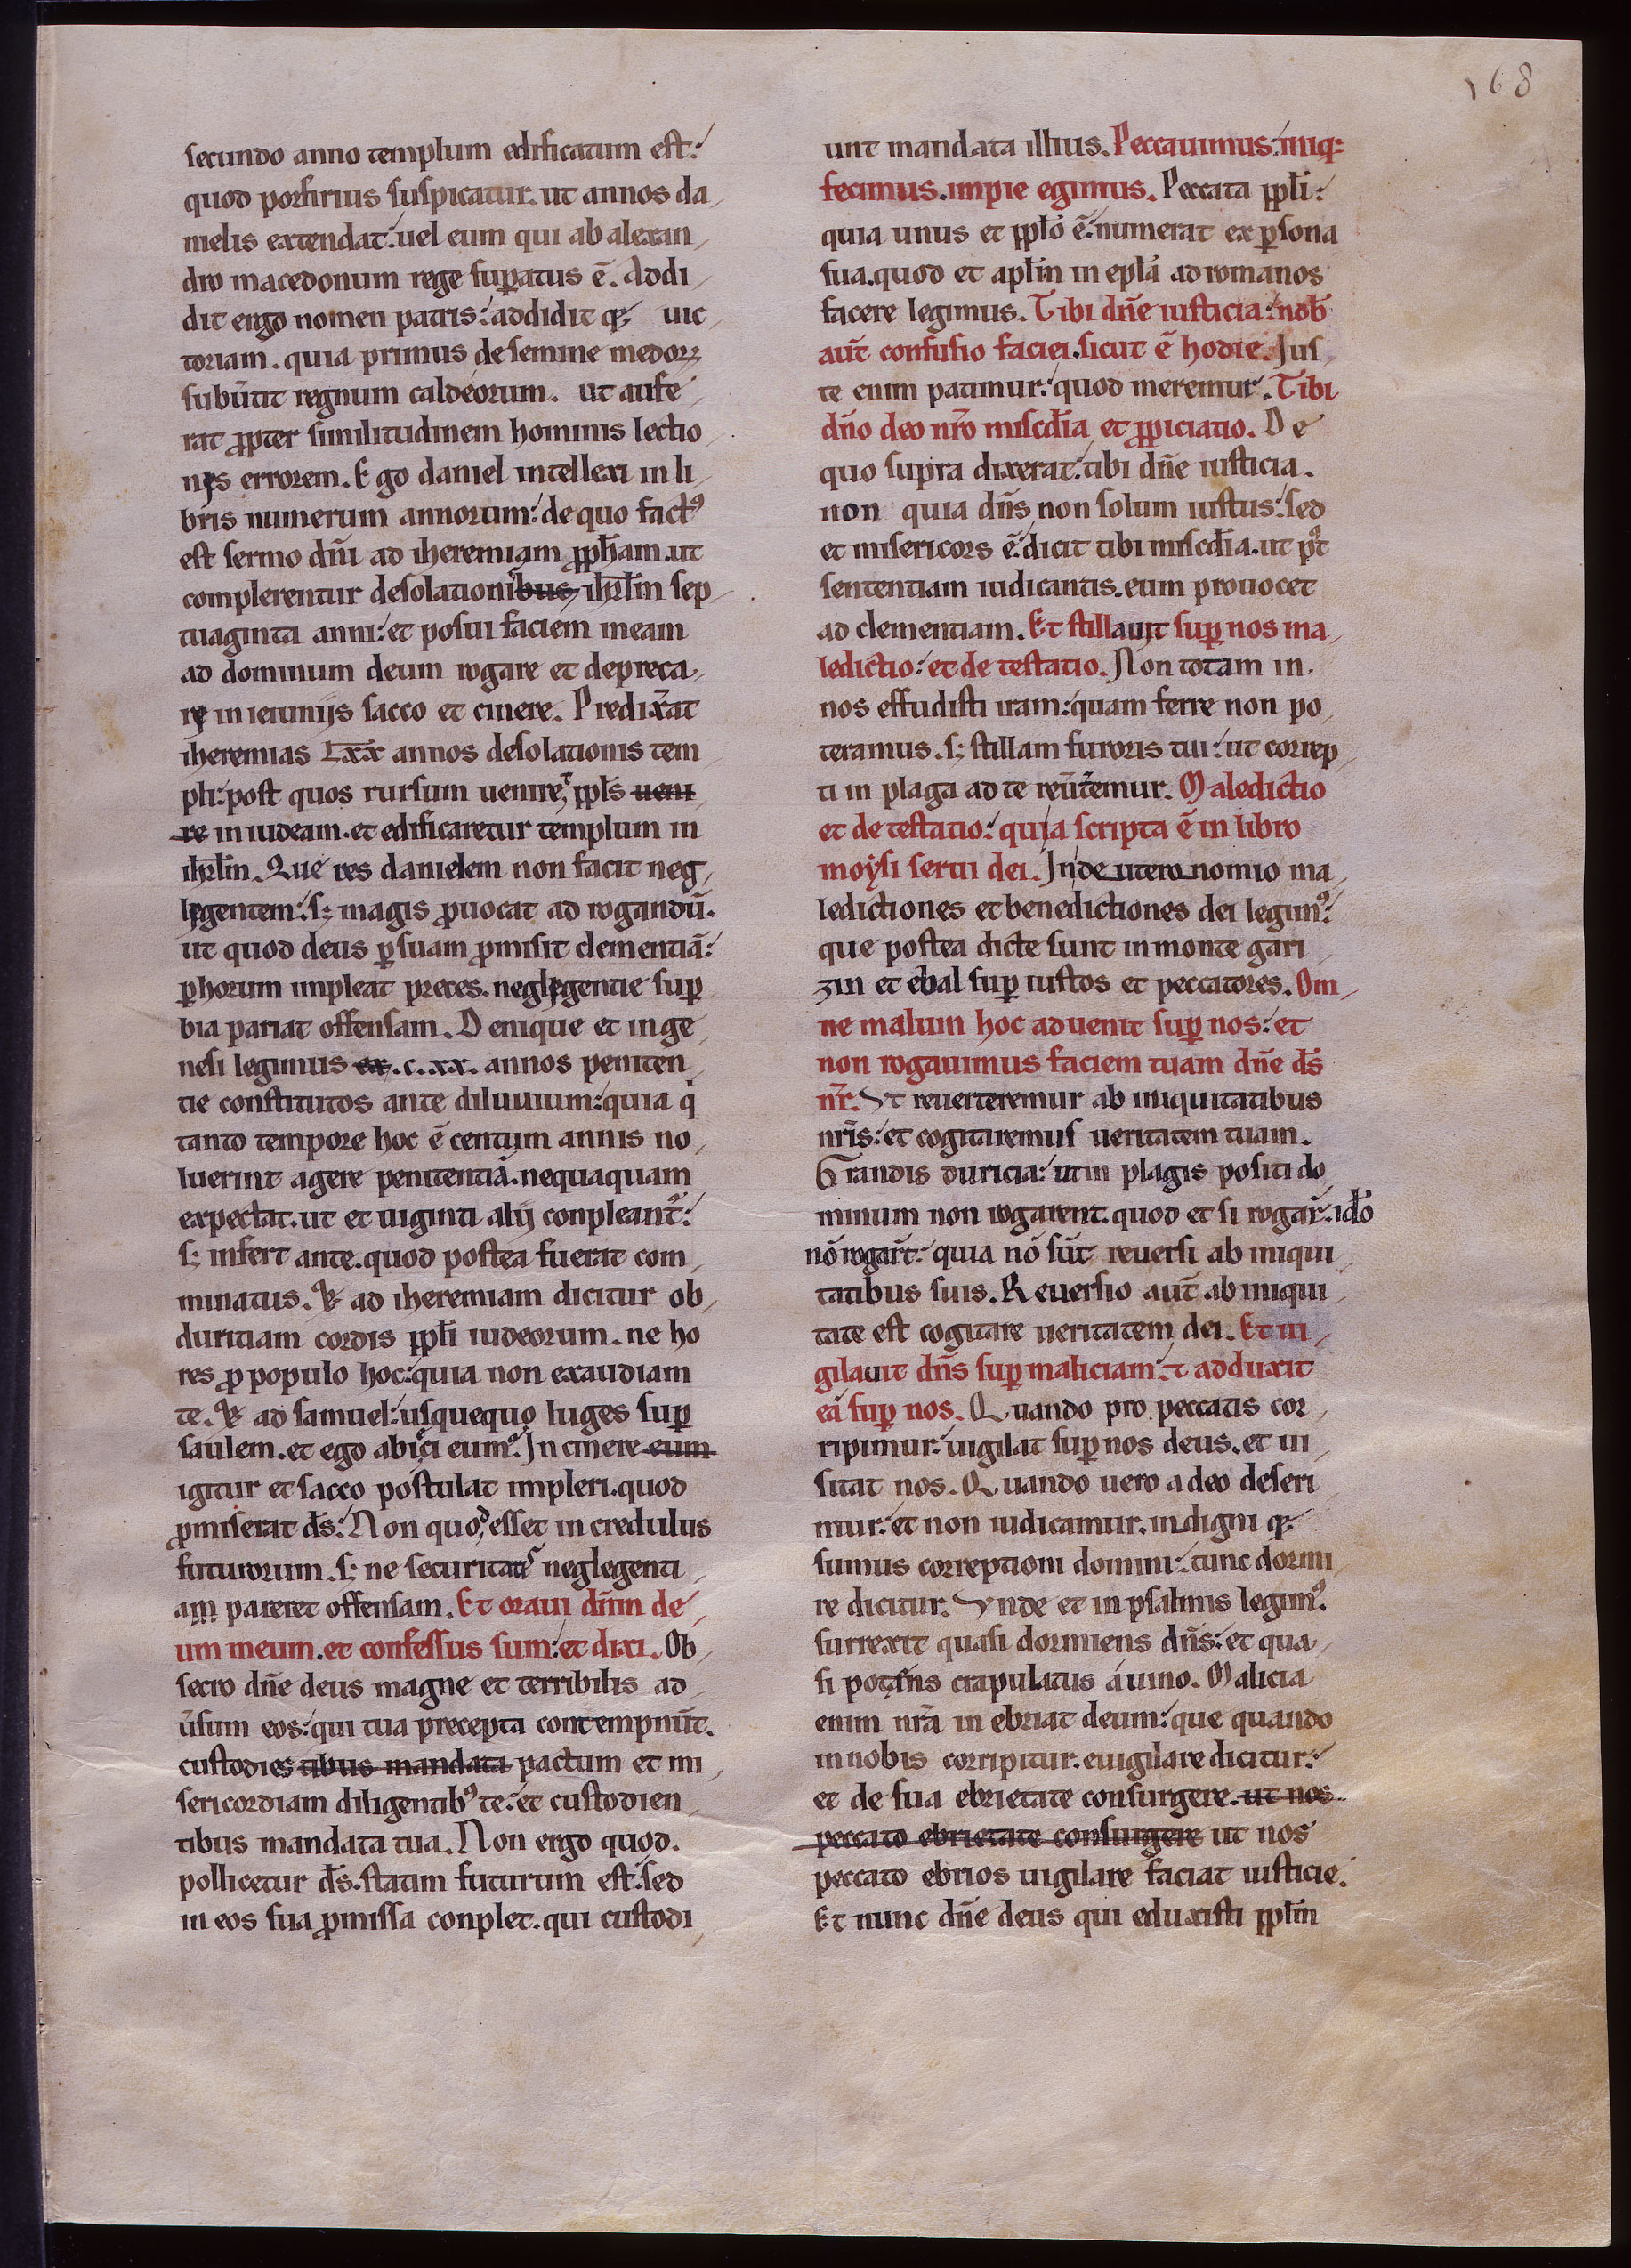 168
secundo anno templum edificatum est:
quod porfirius suspicatur. ut annos da
nielis extendat: uel eum qui ab alexan
dro macedonum rege sup̄atus ē. Addi
dit ergo nomen patris: addidit q; uic
toriam. quia primus de semine medoꝝ
subūtit regnum caldeorum. ut aufe
rat ꝓpter similitudinem hominis lectio
nis errorem. Ego daniel intellexi in li
bris numerum annorum: de quo factꝰ
est sermo dñi ad iheremiam ꝓph̄am. ut
complerentur desolationisbus ih̄rl̄m sep
tuaginta anni: et posui faciem meam
ad dominum deum rogare et depreca
re in ieiunijs sacco et cinere. Predix̄at
iheremias Lxx annos desolationis tem
pli: post quos rursum ueniret ppl̄s ueni
re in iudeam. et edificaretur templum in
ih̄rl̄m. Que res danielem non facit neg
ligentem: s; magis ꝓuocat ad rogandū.
ut quod deus ꝑ suam ꝓmisit clementiā:
ꝑ horum impleat preces. negligentie suꝑ
bia pariat offensam. Denique et in ge
nesi legimus ex. c.xx. annos peniten
tie constitutos ante diluuium: quia q̇
tanto tempore hoc ē centum annis no
luerint agere penitentiā. nequaquam
expectat. ut et uiginti alij conpleant᷑:
s; infert ante. quod postea fuerat com
minatus. & ad iheremiam dicitur ob
duritiam cordis ppl̄i iudeorum. ne ho
res ꝓ populo hoc: quia non exaudiam
te. & ad samuel: usquequo luges suꝑ
saulem. et ego abieci eum? In cinere eum
igitur et sacco postulat impleri. quod
ꝓmiserat d̄s: Non quod esset incredulus
futurorum. s; ne securitas neglegenti
am pareret offensam. Et oraui dñm de
um meum. et confessus sum: et dixi. Ob
secro dñe deus magne et terribilis ad
ūsum eos: qui tua precepta contempnūt.
custodies tibus mandata pactum et mi
sericordiam diligentibꝰ te: et custodien
tibus mandata tua. Non ergo quod.
pollicetur d̄s. statim futurum est: sed
in eos sua ꝓmissa conplet. qui custodi
unt mandata illius. Peccauimus: iniq;
fecimus. impie egimus. Peccata ppl̄i:
quia unus et ppl̄o ē: numerat ex ꝑsona
sua. quod et apl̄m in epl̄a ad romanos
facere legimus. Tibi dñe iusticia: nob̄
aut̄ confusio faciei. sicut ē hodie. Jus
te enim patimur: quod meremur. Tibi
dño deo nr̄o miscd̄ia et ꝓpiciatio. De
quo supra dixerat: tibi dñe iusticia.
non quia dñs non solum iustus: sed
et misericors ē: dicit tibi miscd̄ia. ut pꝰt
sententiam iudicantis. eum prouocet
ad clementiam. Et stillauit suꝑ nos ma
ledictio: et detestatio. Non totam in
nos effudisti iram: quam ferre non po
teramus. s; stillam furoris tui: ut correp
ti in plaga ad te reūt̄emur. Maledictio
et detestatio: quia scripta ē in libro
moysi serui dei. In deuteronomio ma
ledictiones et benedictiones dei legimꝰ:
que postea dicte sunt in monte gari
zin et ebal suꝑ iustos et peccatores. Om
ne malum hoc aduenit suꝑ nos: et
non rogauimus faciem tuam dñe d̄s
nr̄. Vt reuerteremur ab iniquitatibus
nr̄is: et cogitaremus ueritatem tuam.
Grandis duricia: ut in plagis positi do
minum non rogarent. quod et si rogar̄: id̄o
nō rogar̄t: quia nō sūt reuersi ab iniqui
tatibus suis. Reuersio aut̄ ab iniqui
tate est cogitare ueritatem dei. Et ui
gilauit dñs suꝑ maliciam: ⁊ adduxit
eā suꝑ nos. Quando pro peccatis cor
ripimur: uigilat suꝑ nos deus. et ui
sitat nos. Quando uero a deo deseri
mur: et non iudicamur. indigni q;
sumus correptioni domini: tunc dormi
re dicitur. Vnde et in psalmis legimꝰ.
surrexit quasi dormiens dñs: et qua
si potens crapulatus a uino. Malicia
enim nr̄a inebriat deum: que quando
in nobis corripitur. euigilare dicitur:
et de sua ebrietate consurgere. ut nos
peccato ebrietate consurgere ut nos
peccato ebrios uigilare faciat iusticie.
Et nunc dñe deus qui eduxisti ppl̄m